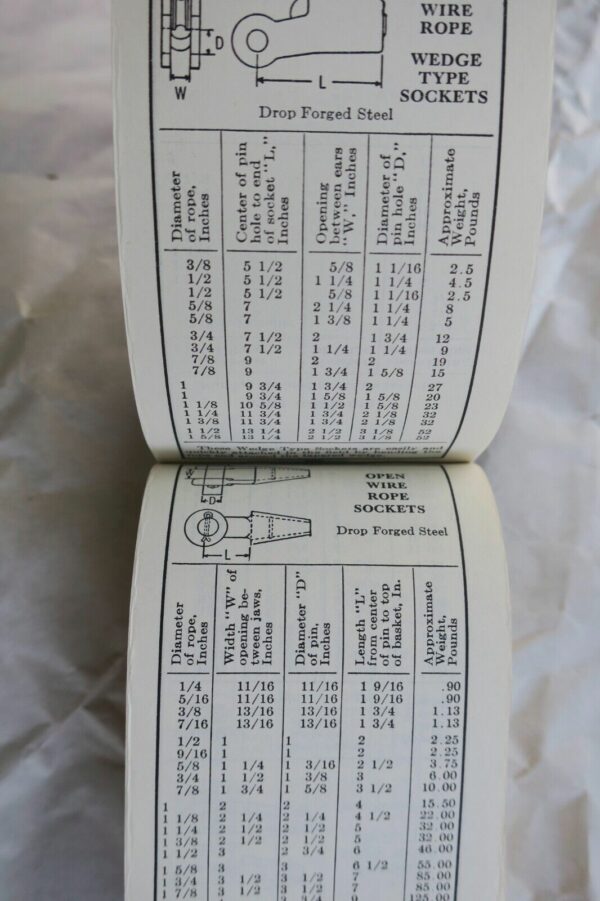 WIRE
ROPE
WEDGE
TYPE
SOCKETS
D
W
L
Drop Forged Steel
Diameter of rope, Inches | Center of pin hole to end of socket "L," Inches | Opening between ears "W," Inches | Diameter of pin hole "D," Inches | Approximate Weight, Pounds
3/8 5 1/2 5/8 1 1/16 2.5
1/2 5 1/2 1 1/4 1 1/4 4.5
1/2 5 1/2 5/8 1 1/16 2.5
5/8 7 2 1/4 1 1/4 8
5/8 7 1 3/8 1 1/4 5
3/4 7 1/2 2 1 3/4 12
3/4 7 1/2 1 1/4 1 1/4 9
7/8 9 2 2 19
7/8 9 1 3/4 1 5/8 15
1 9 3/4 1 3/4 2 27
1 9 3/4 1 5/8 1 5/8 20
1 1/8 10 5/8 1 1/2 1 5/8 23
1 1/4 11 3/4 1 3/4 2 1/8 32
1 3/8 11 3/4 1 3/4 2 1/8 32
1 1/2 13 1/4 2 1/2 3 1/8 52
1 5/8 13 1/4 2 1/2 3 1/8 52
These Wedge Type Sockets are easily and
OPEN
WIRE
ROPE
SOCKETS
D
L
Drop Forged Steel
Diameter of rope, Inches | Width "W" of opening be- tween jaws, Inches | Diameter "D" of pin, Inches | Length "L" from center of pin to top of basket, In. | Approximate Weight, Pounds
1/4 11/16 11/16 1 9/16 .90
5/16 11/16 11/16 1 9/16 .90
3/8 13/16 13/16 1 3/4 1.13
7/16 13/16 13/16 1 3/4 1.13
1/2 1 1 2 2.25
9/16 1 1 2 2.25
5/8 1 1/4 1 3/16 2 1/2 3.75
3/4 1 1/2 1 3/8 3 6.00
7/8 1 3/4 1 5/8 3 1/2 10.00
1 2 2 4 15.50
1 1/8 2 1/4 2 1/4 4 1/2 22.00
1 1/4 2 1/2 2 1/2 5 32.00
1 3/8 2 1/2 2 1/2 5 32.00
1 1/2 3 2 3/4 6 46.00
1 5/8 3 3 6 1/2 55.00
1 3/4 3 1/2 3 1/2 7 85.00
1 7/8 3 1/2 3 1/2 7 85.00
3/4 9 125.00